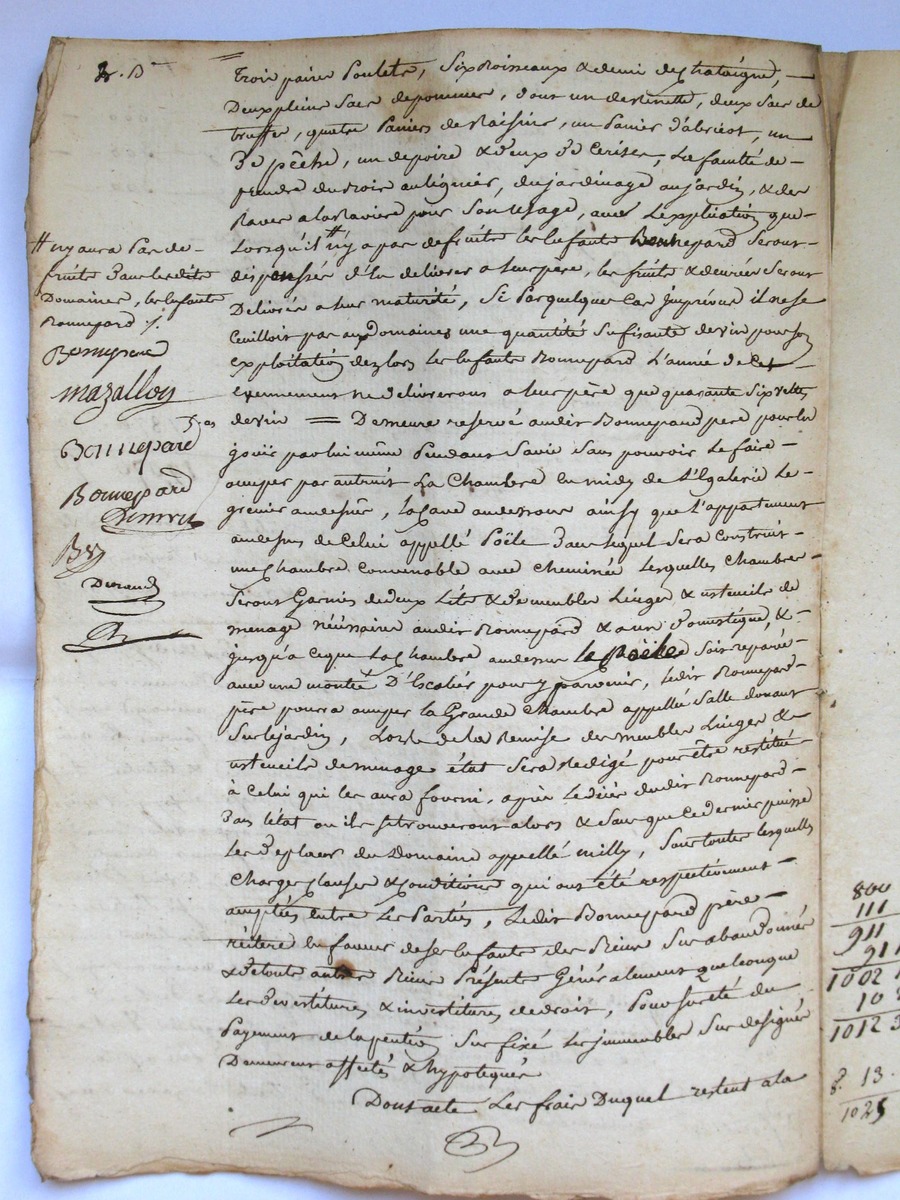 trois paires Poulets, Six Boisseaux & demi de Chataigne,
Deux pleins Sacs de pommes, dont un de Reinette, deux Sacs de
truffes, quatre Paniers de Raisins, un Panier d'abricot, un
de pêche, un de poire & deux de Cerises, La faculté de
prendre du bois au ligner, du jardinage au jardin, & des
Raves a la Raviere pour Son usage, avec L'explication que
Lorsqu'il # n'y a pas de fruits les Enfants Bonnepard Seront
dispensés d'En delivrer a leur père, les fruits & denrées Seront
Delivrés a leur maturité, Si Par quelque Cas Imprévu il ne se
Ceuilloit pas aux Domaines une quantité Sufisante de vin pour Son
exploitation dez lors Les Enfants Bonnepard L'année de Cet
evennement ne delivreront a leur père que quarante Six veltes
de vin = Demeure reservé audit Bonnepard père pour En
jouir par lui même Pendant Sa vie Sans pouvoir Le faire
occuper par autruit La Chambre En midy de L'Egalerie Le
grenier au dessus, La Cave au dessous ainsy que L'appartement
au dessus de Celui appellé Poële dans lequel Sera Construit
une Chambre Convenable avec Cheminée Lesquelles Chambres
Seront Garnies de deux Lits & de meubles Linges & ustenciles de
menage nécessaires audit Bonnepard & a un domestique, &
jusqu'a ce que La Chambre au dessus le Poële Soit reparée
avec une montée D'Escaliers pour y parvenir, Ledit Bonnepard
père pourra occuper la Grande Chambre appellée Salle donant
Sur le jardin, Lors de la Remise des meubles Linges &
ustenciles de menage état Sera Redigé pour être restitué
à Celui qui les aura fourni, après Le décès dudit Bonnepard
dans L'état ou ils se trouveront alors & Sauf que Ce dernier puisse
Les deplacer du Domaine appellé milly, Sous toutes lesquelles
Charges Clauses & Conditions qui ont été respectivement
acceptées entre Les Parties, Ledit Bonnepard père
réitere En faveur de Ses Enfants des Biens Sus abandonnés
& de toute autres Biens Présents Généralement quelconque
Les devestitures & investitures de droit, Pour Sureté du
Payement de la pention Sus fixé Les jmmeubles Sus designés
Demeurent affectés & hypotequés
Dont acte Les frais Duquel restent a la
# n'y aura Pas de
fruits Dans lesdits
Domaines, les Enfants
Bonnepard
Bonnepard
mazalloy
Bonnepard
Bonnepard
Durand
800
111
911
91
1002
10
1012
13
1025